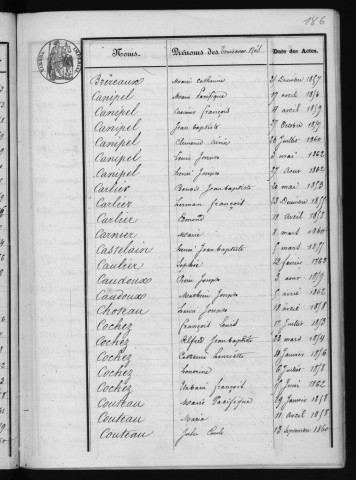 186
Noms. Prénoms des Date des Actes.
Bréreaux Marie Catherine 31 Décembre 1857
Canipel Marie Pacifique 17 avril 1854
Canipel Casimir françois 4 avril 1859
Canipel Jean baptiste 27 Octobre 1857
Canipel Clemence 26 Juillet 1860
Canipel Louis Joseph 3 mai 1862
Canipel henri Joseph 27 Aout 1862
Carlier Benoit Jean baptiste 20 mai 1853
Carlier herman françois 23 Décembre 1855
Carlier Edmond 18 Avril 1858
Carnier Marie 8 mars 1860
Casselain henri Jean baptiste 5 mars 1857
Caulier Sophie 22 février
Caudoux Joseph 3 1859
Caudoux Mathieu Joseph 5 avril 1862
Choteau Louis Joseph 18 avril 1858
Cochez François Louis 17 Juillet 1853
Cochez Alfred Jean baptiste 22 mars 1854
Cochez Catherine henriette 18 Janvier 1856
Cochez honorine 6 Juillet 1858
Cochez Urbain françois 8 Juin 1862
Couteau Marie Pacifique 29 Janvier 1858
Couteau Maria 11 avril 1858
Couteau Jules 13 Septembre 1860